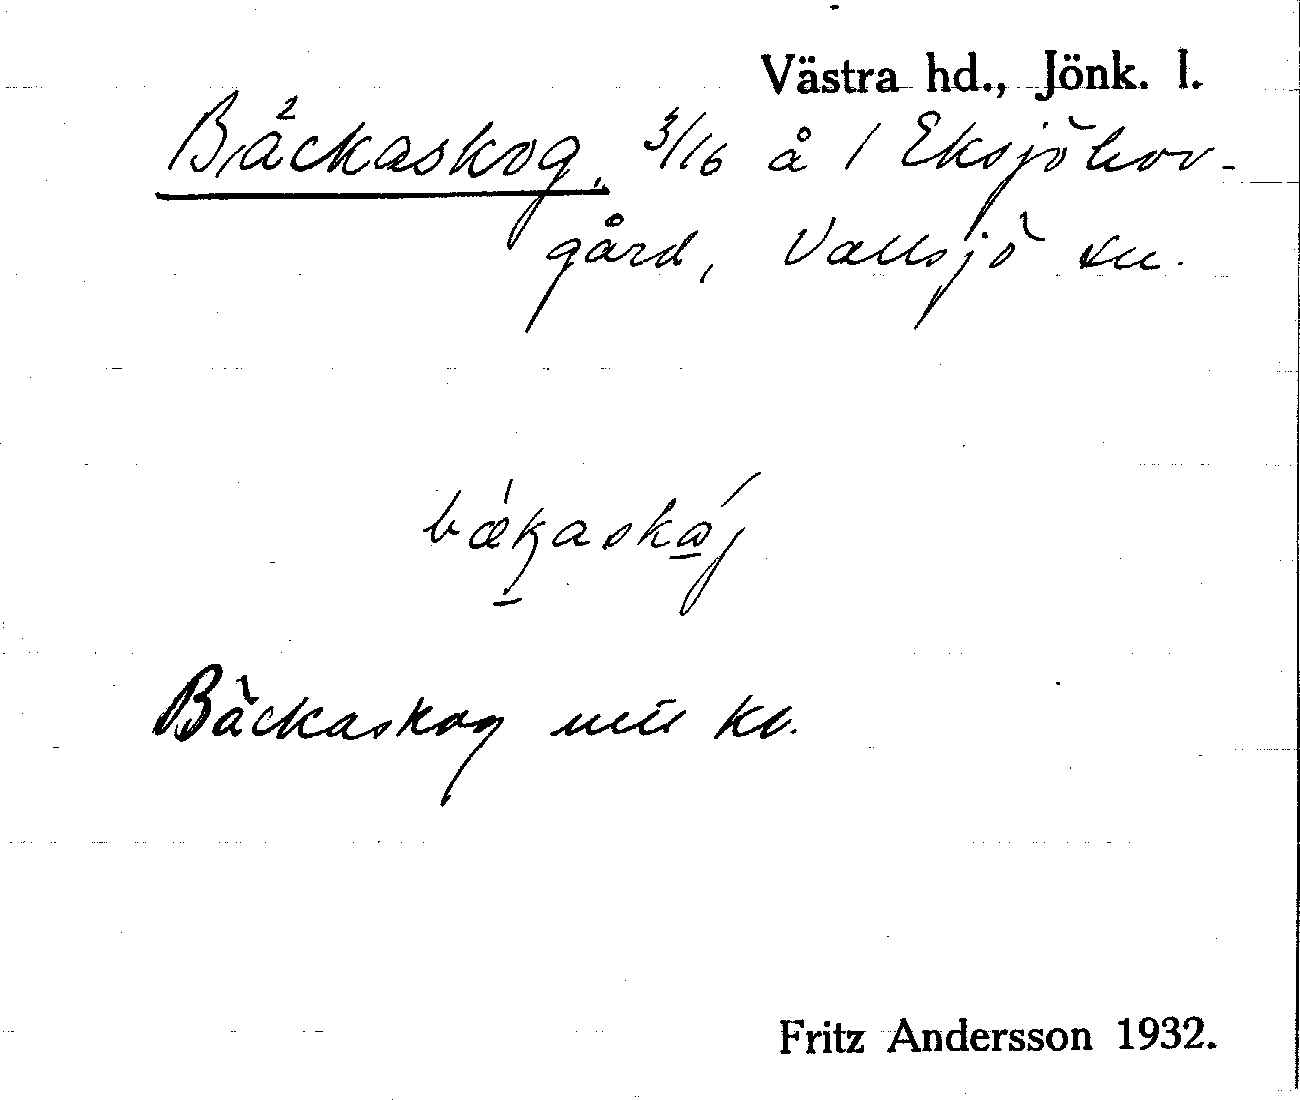 Västra hd., Jönk. l.
Bäckaskog, 3/16 å 1 Eksjöhov-
gård, Vallsjö sn.
bǽkaskåj
Bäckaskog kb.
Fritz Andersson 1932.